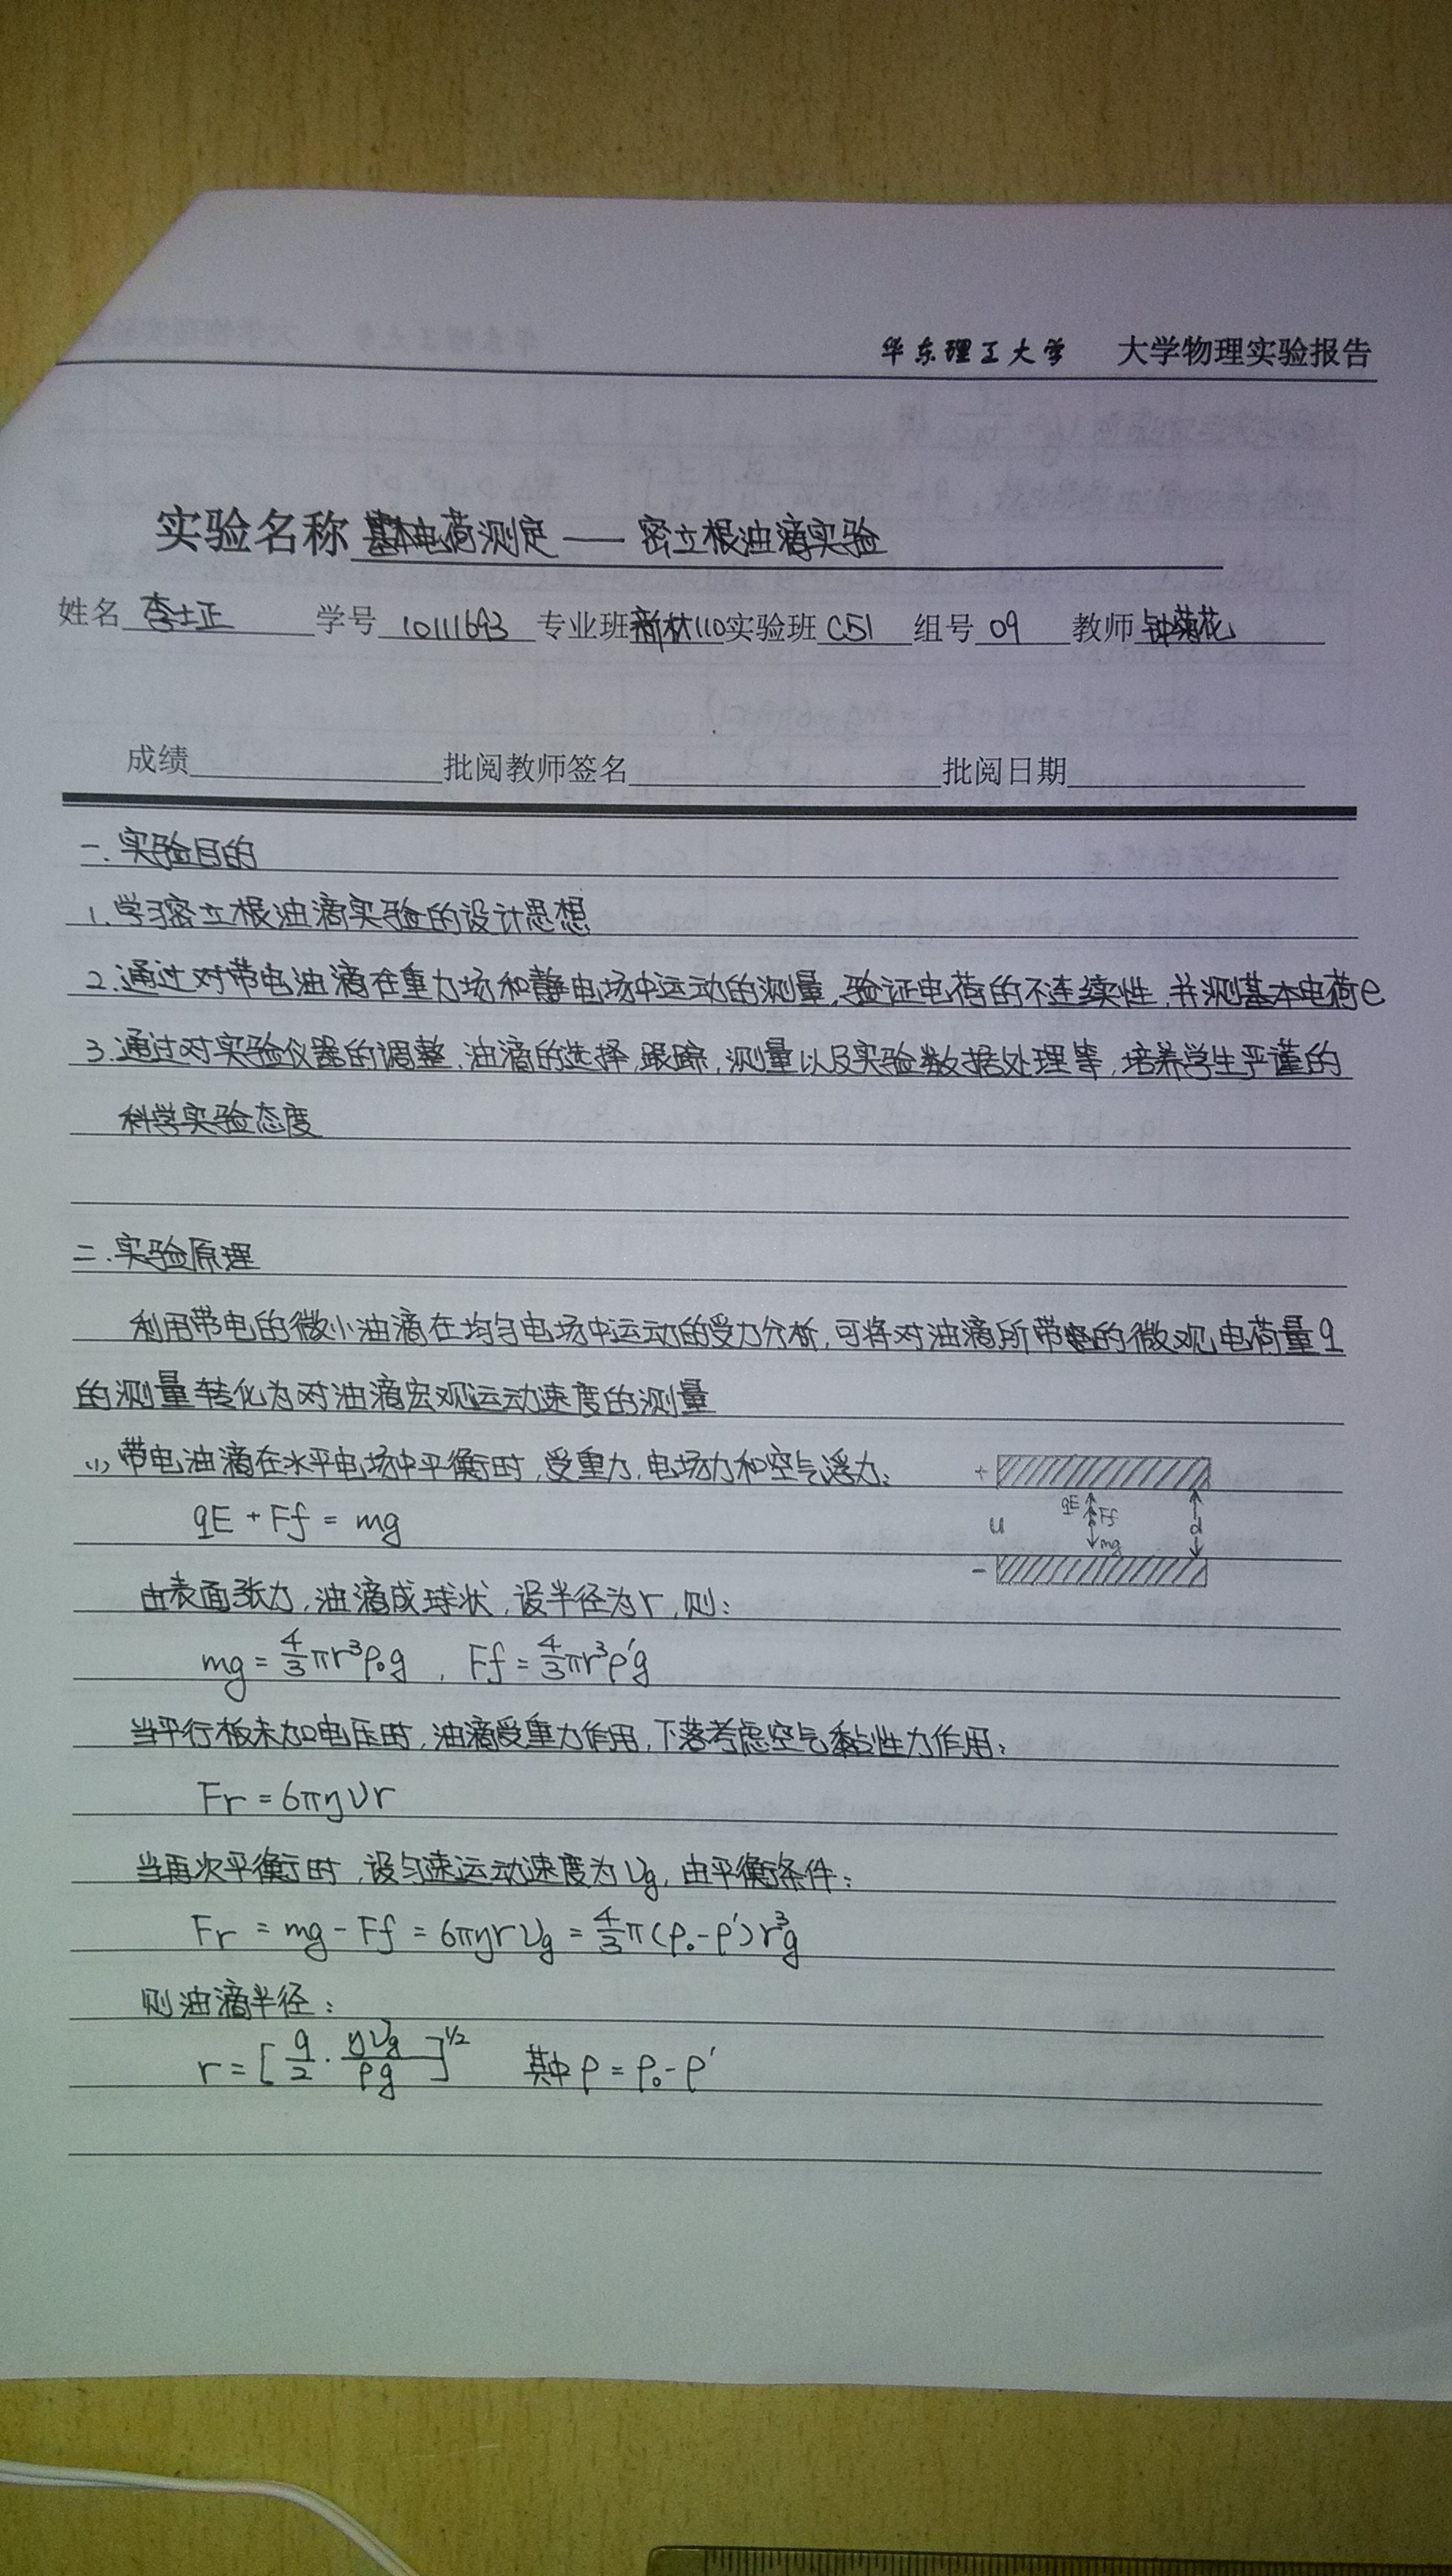 华东理工大学 大学物理实验报告
实验名称 基本电荷测定 — 密立根油滴实验
姓名 李士正 学号 10111693 专业班 新材110 实验班 C51 组号 09 教师 钟菊花
成绩 批阅教师签名 批阅日期
一. 实验目的
1. 学习密立根油滴实验的设计思想
2. 通过对带电油滴在重力场和静电场中运动的测量, 验证电荷的不连续性, 并测基本电荷e
3. 通过对实验仪器的调整、油滴的选择, 跟踪, 测量以及实验数据处理等, 培养学生严谨的
科学实验态度
二. 实验原理
利用带电的微小油滴在均匀电场中运动的受力分析, 可将对油滴所带的微观电荷量q
的测量转化为对油滴宏观运动速度的测量
(1) 带电油滴在水平电场中平衡时, 受重力, 电场力和空气浮力:
qE + Ff = mg
+
u
qE
Ff
mg
d
-
由表面张力, 油滴成球状, 设半径为r, 则:
mg = 4/3 πr³ρ₀g , Ff = 4/3 πr³ρ'g
当平行板未加电压时, 油滴受重力作用, 下落考虑空气黏性力作用:
Fr = 6πηυr
当再次平衡时, 设匀速运动速度为υg, 由平衡条件:
Fr = mg - Ff = 6πηrυg = 4/3 π(ρ₀-ρ')r³g
则油滴半径:
r = [9/2 · ηυg/ρg]^1/2 其中 ρ = ρ₀ - ρ'